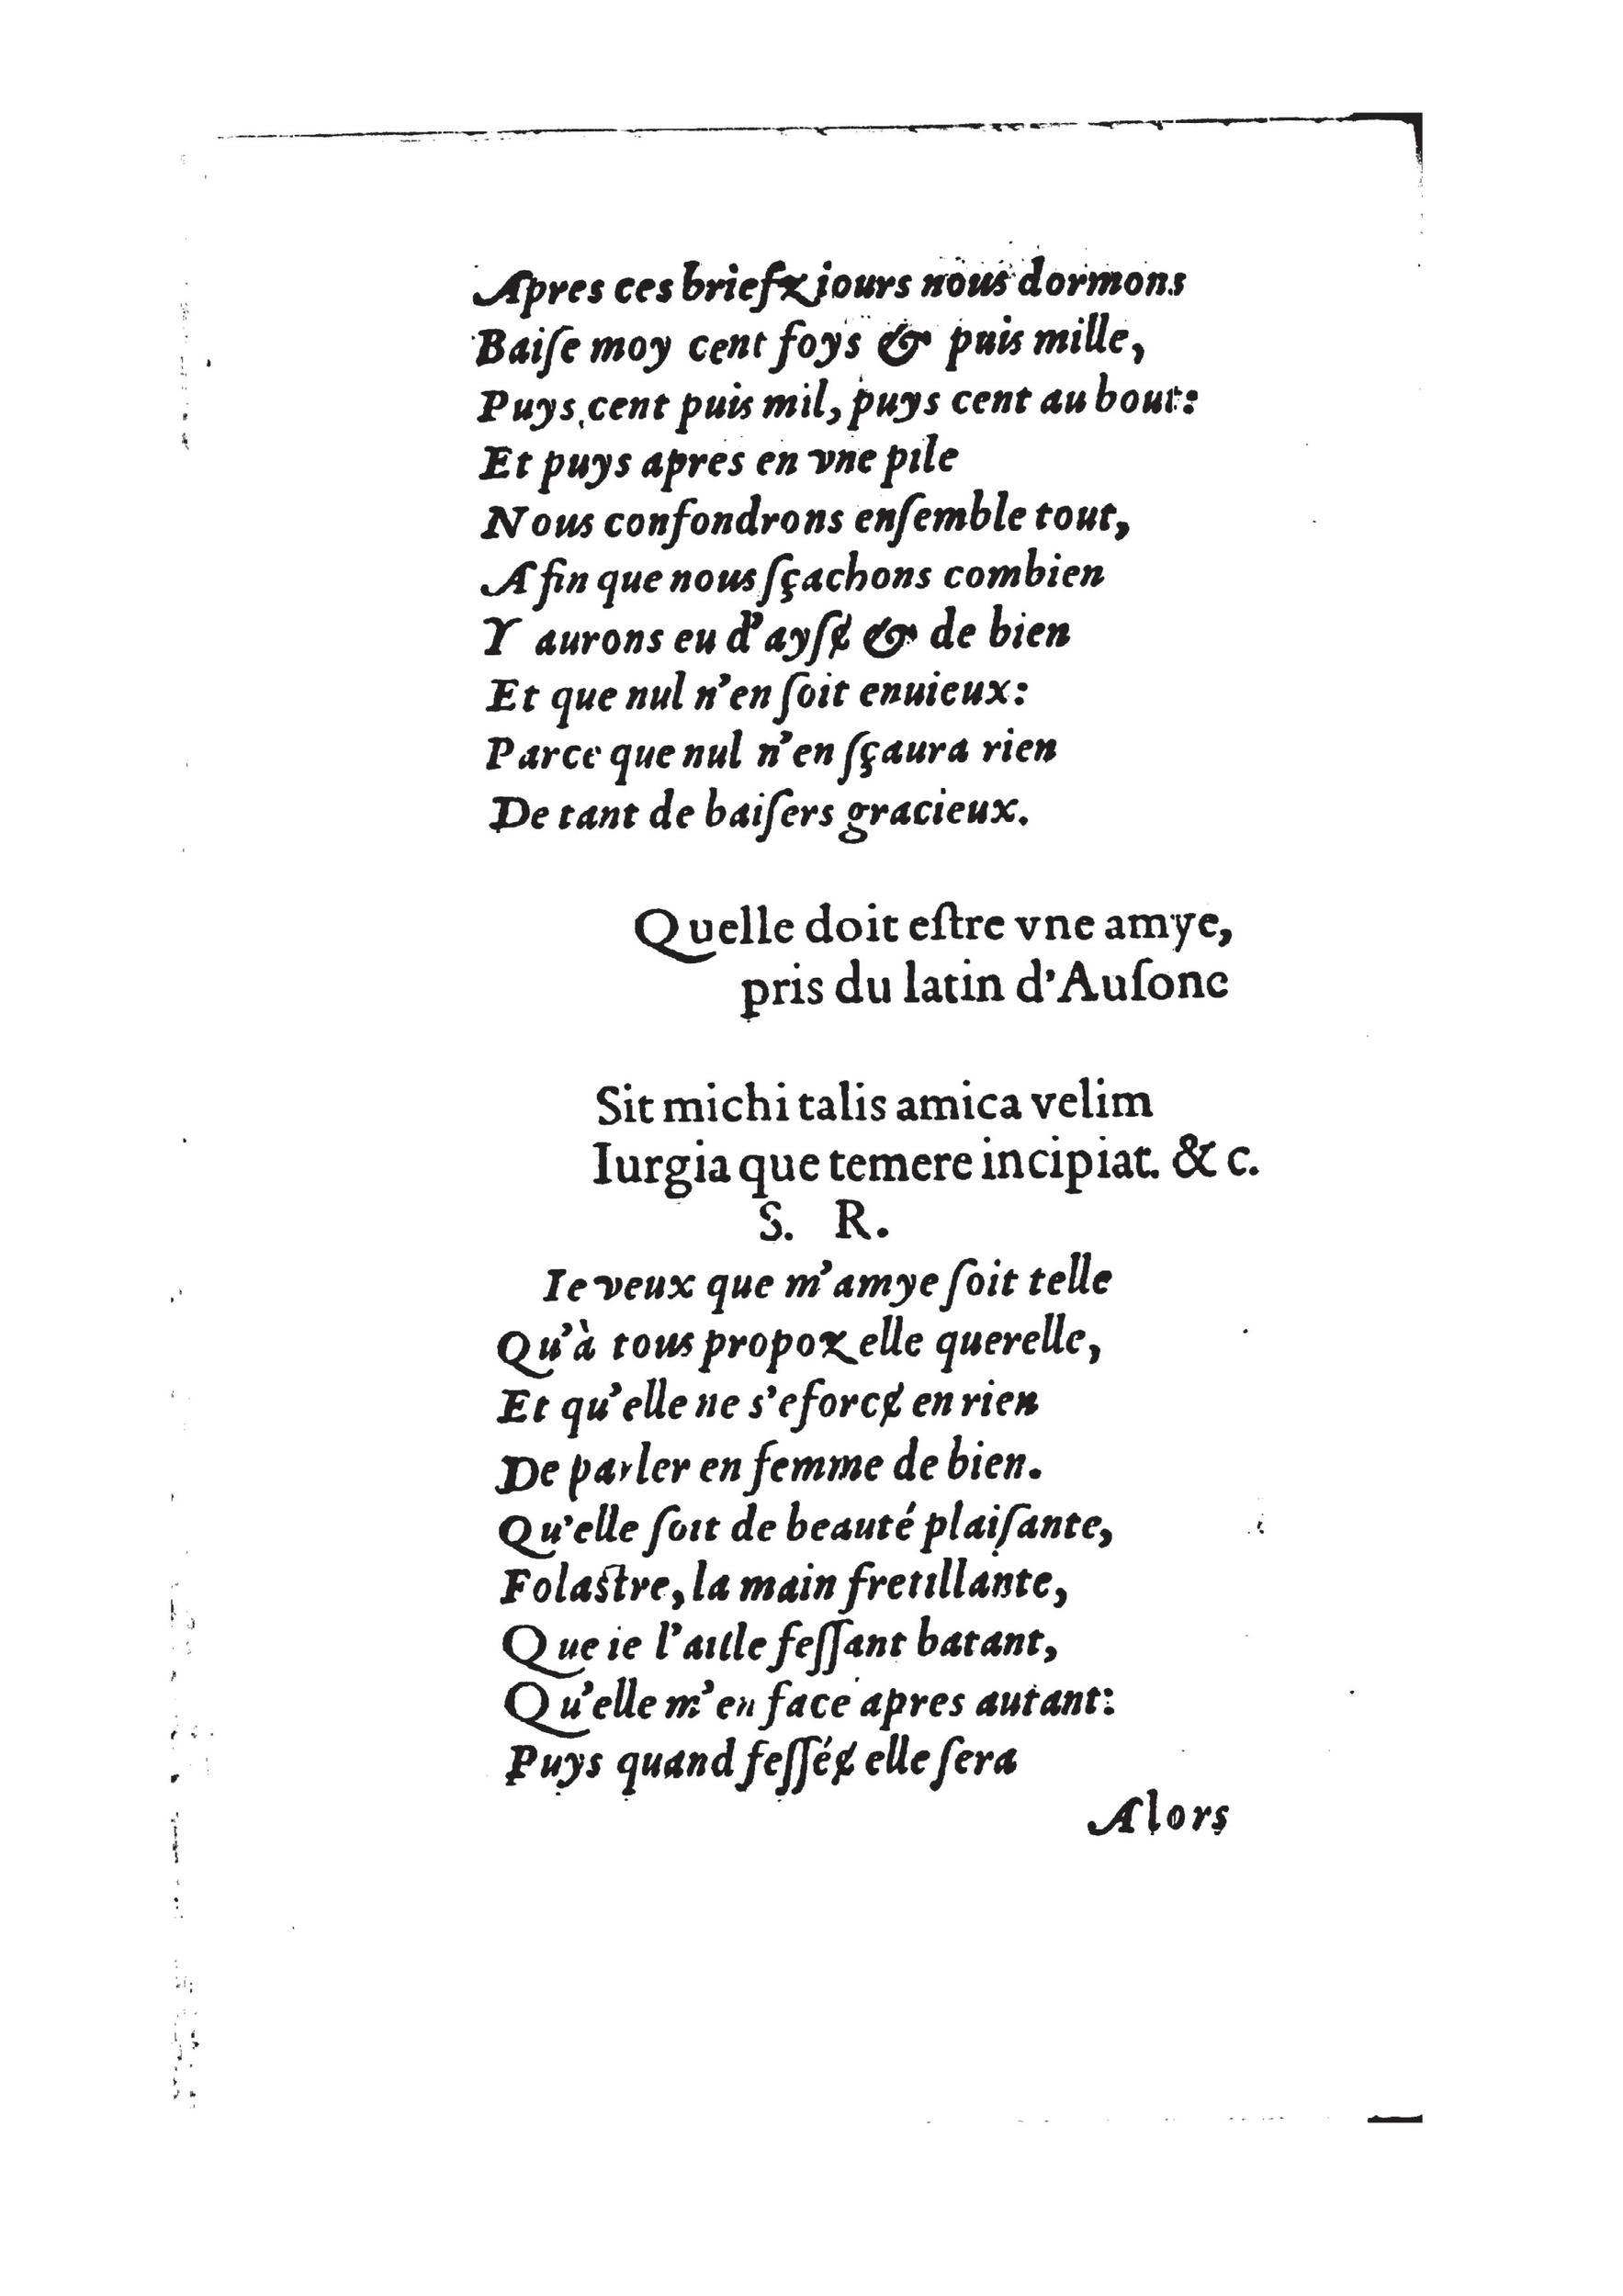 Apres ces briefz iours nous dormons
Baiſe moy cent foys & puis mille,
Puys cent puis mil, puys cent au bout:
Et puys apres en vne pile
Nous confondrons enſemble tout,
Afin que nous ſçachons combien
Y aurons eu d'ayſɇ & de bien
Et que nul n'en ſoit enuieux:
Parce que nul n'en ſçaura rien
De tant de baiſers gracieux.
Quelle doit eſtre vne amye,
pris du latin d'Auſone
Sit michi talis amica velim
Iurgia que temere incipiat. & c.
S. R.
Ie veux que m'amye ſoit telle
Qu'à tous propoz elle querelle,
Et qu'elle ne s'eforcɇ en rien
De parler en femme de bien.
Qu'elle ſoit de beauté plaiſante,
Folaſtre, la main fretillante,
Que ie l'aille feſſant batant,
Qu'elle m'en face apres autant:
Puys quand feſſéɇ elle ſera
Alors